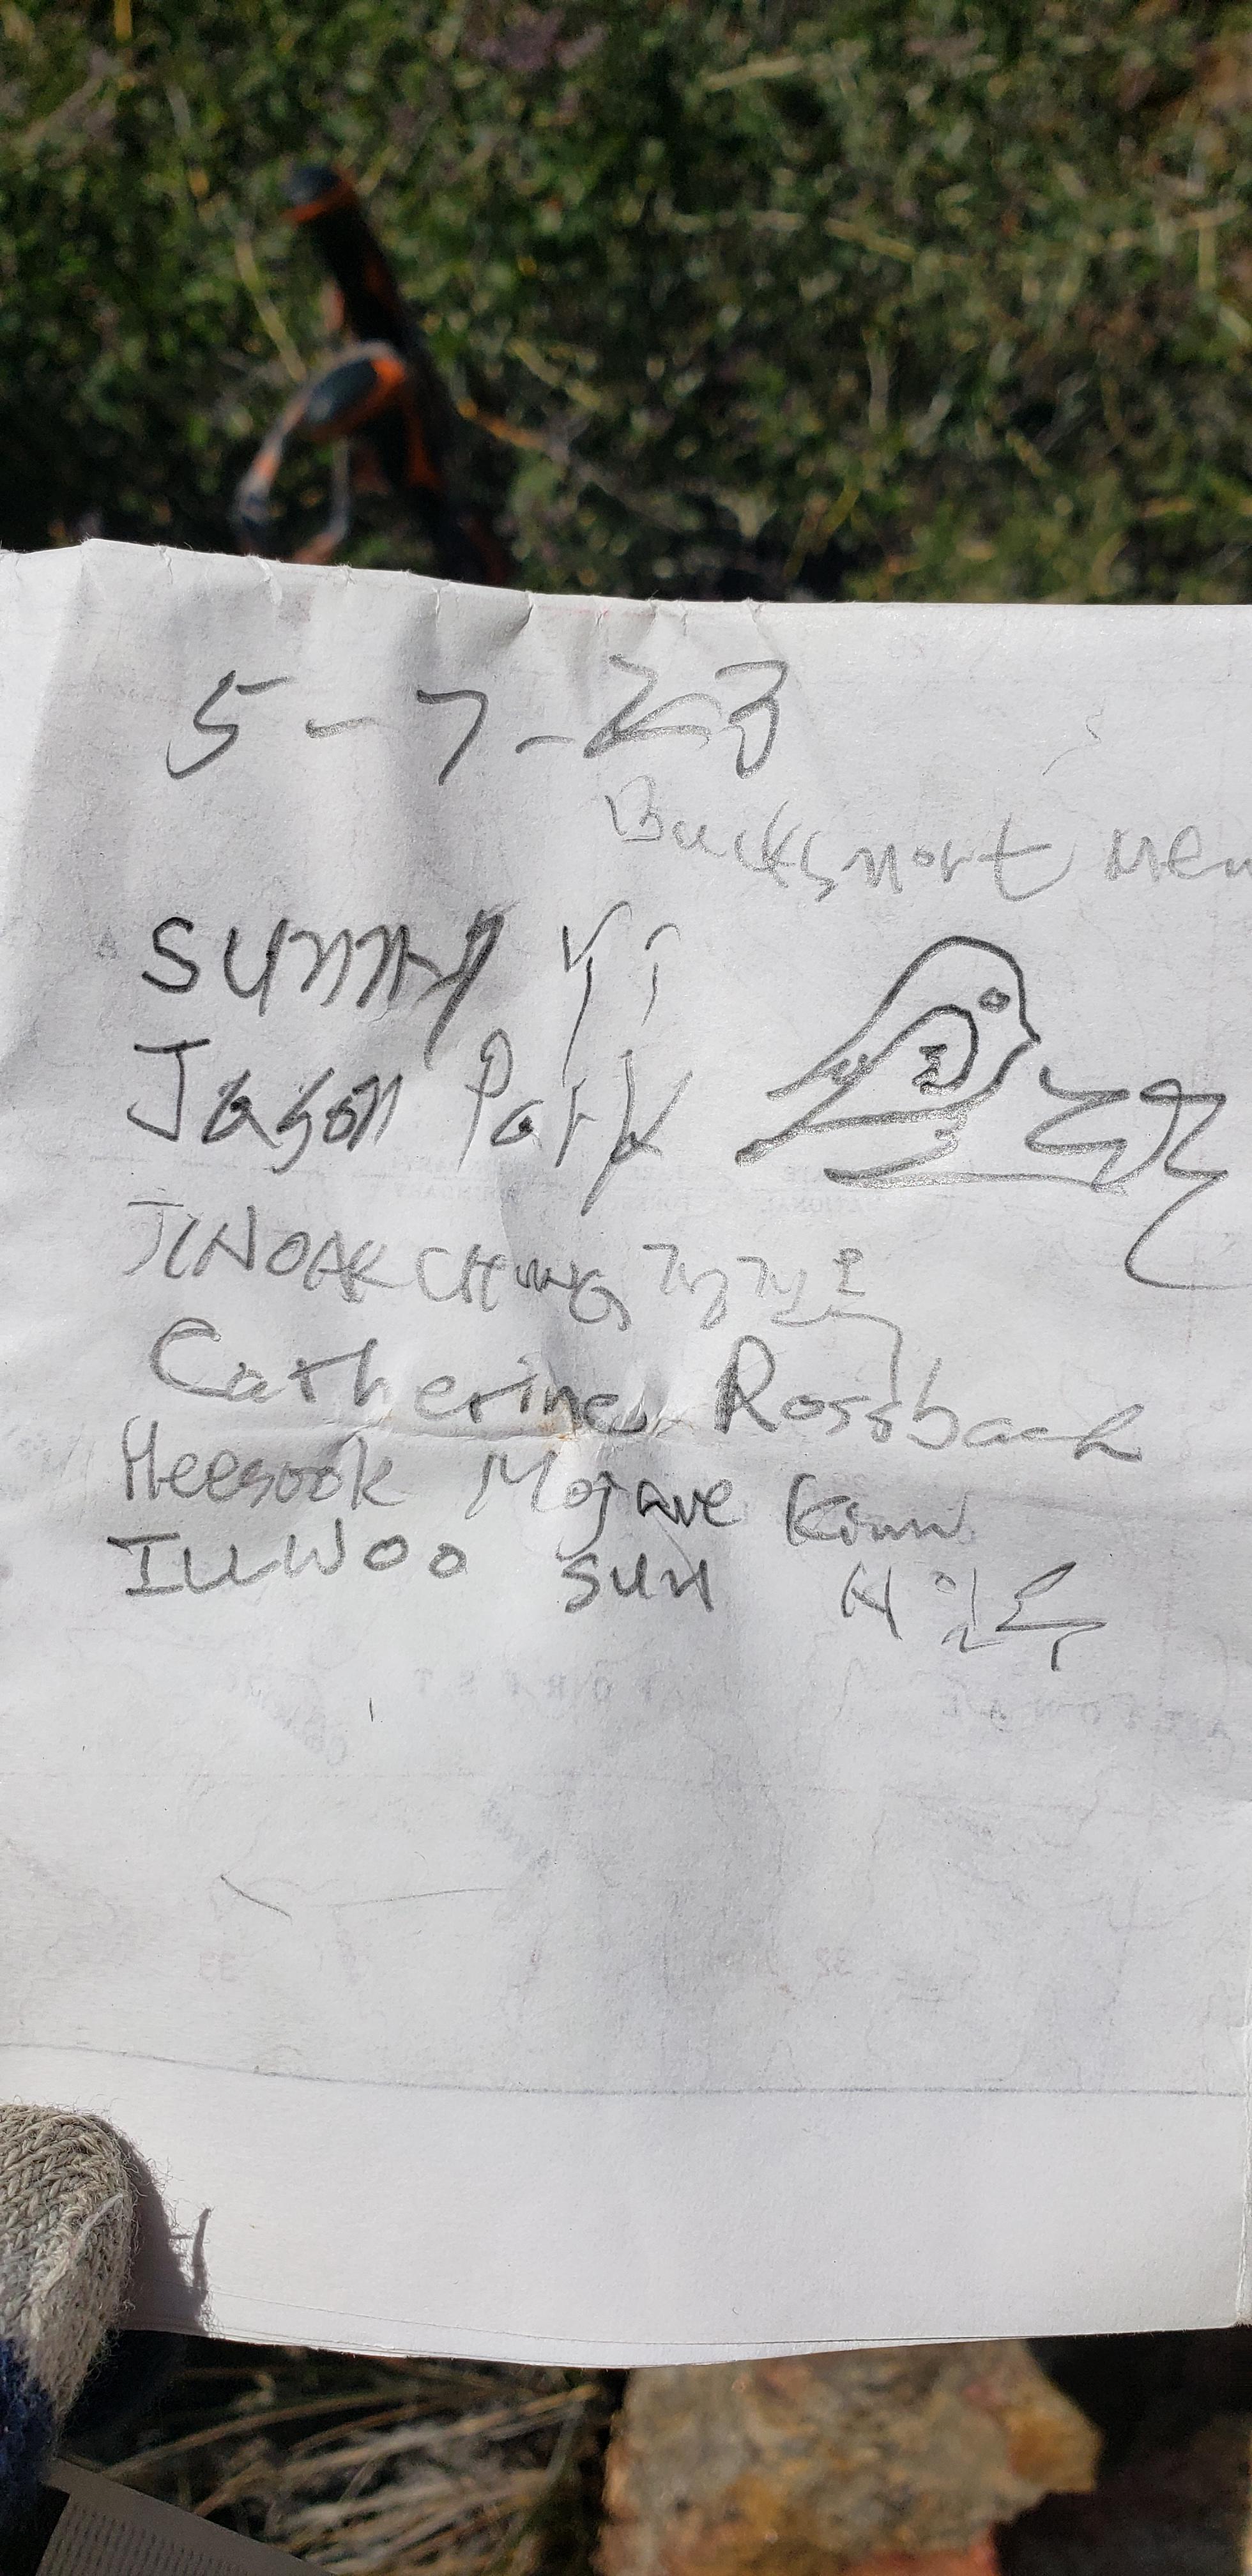 5-7-23
Bucksnort
Sunny Yi
Jason Park
JINOAK CHUNG 정진옥
Catherine Rossbach
Heesook Mojave Kimm
ILLWOO SUH 서일우